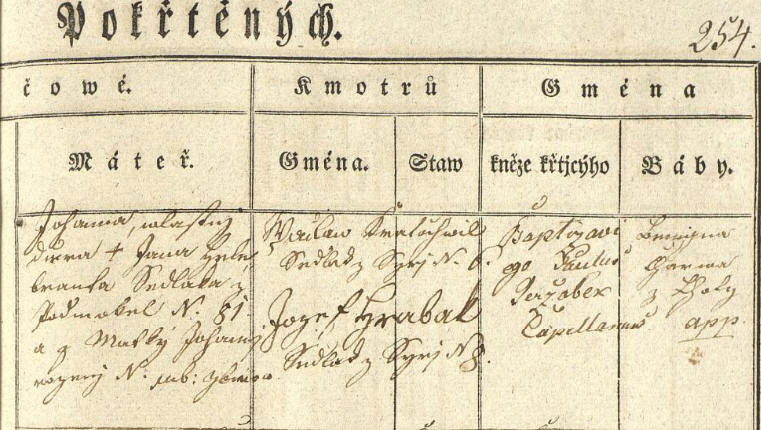 Pokřtěných.
254.
čowé.
Kmotrů
Gména
Máteř.
Gména.
Staw
kněze křtjcýho
Báby.
Johanna, wlastnj
dcera + Jana
Sedláka z
Podmokel N. 81
a g Matky Johany
rozený N.
Wáclaw Kratochwil
Sedlák z Syrj N. 6.
Jozef Hrabák
Sedlák z Syrj N 8.
Baptizavi
ego Paulus
Jeřzabek
Capellanus
z Lhoty
app.